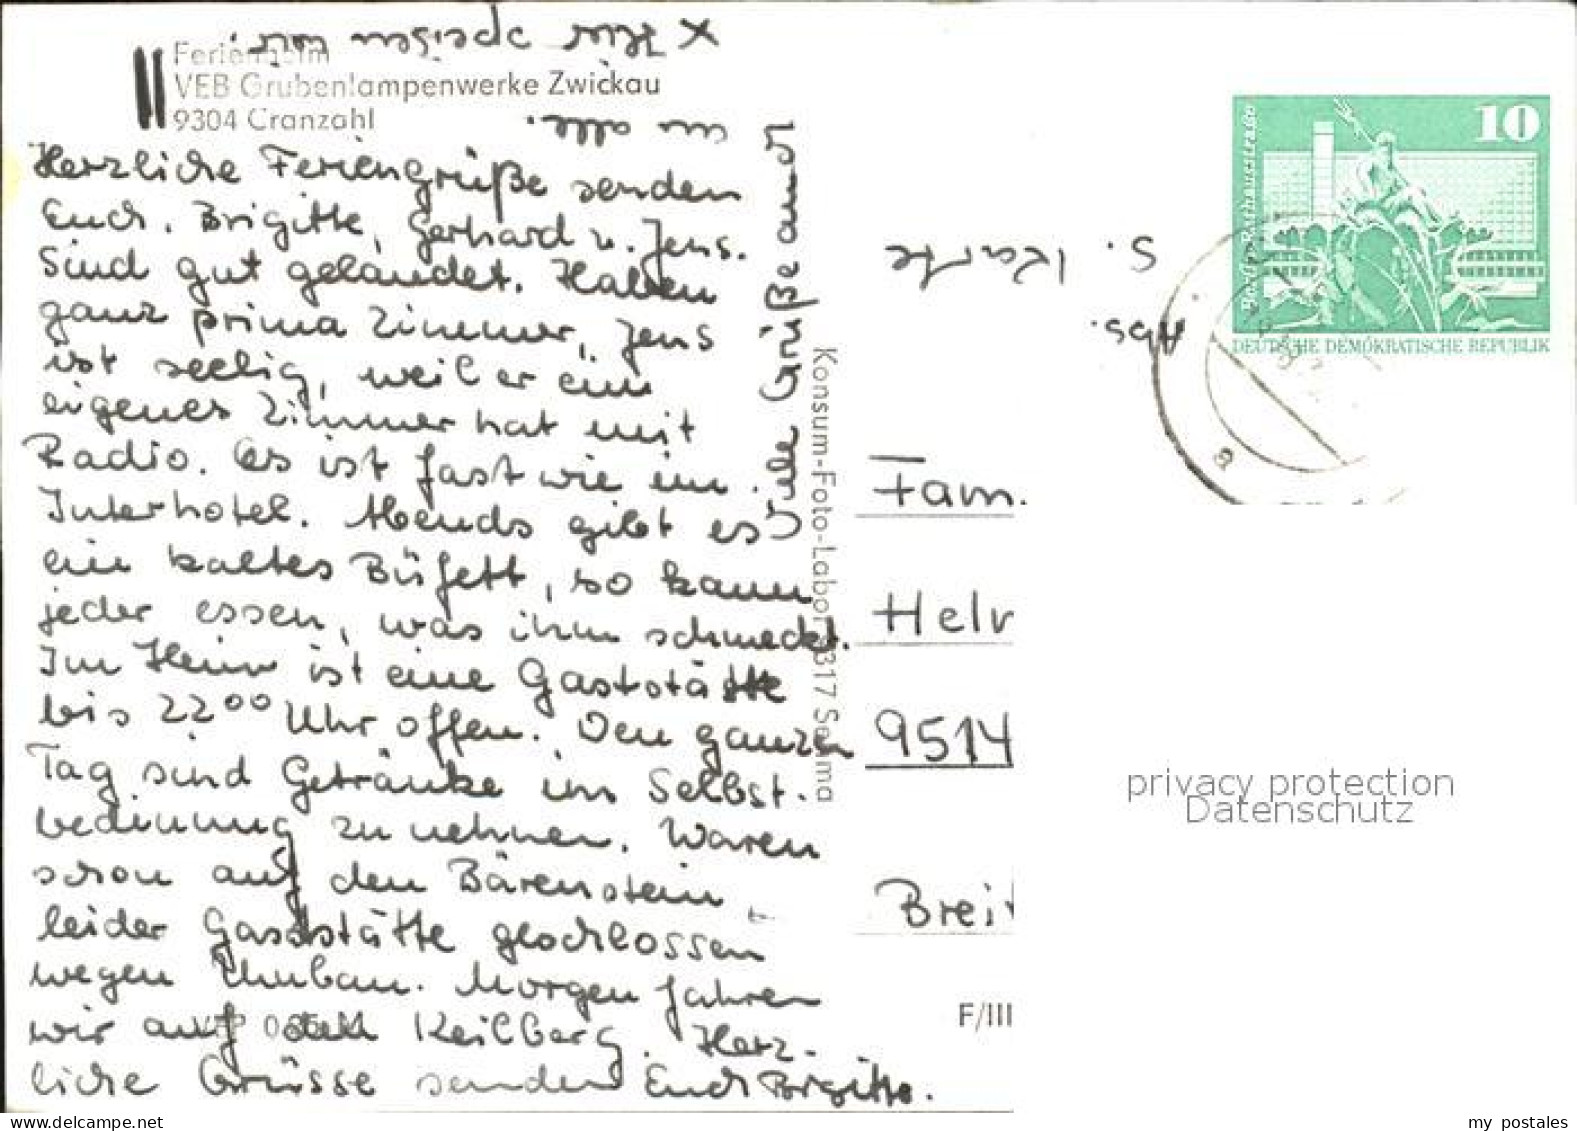 X Hier speisen wir.
Ferienheim
VEB Grubenlampenwerke Zwickau
9304 Cranzahl
Herzliche Feriengrüße senden
Euch. Brigitte, Gerhard u. Jens.
Sind gut gelandet. Haben
ganz prima Zimmer, Jens
ist seelig, weil er ein
eigenes Zimmer hat mit
Radio. Es ist fast wie im
Interhotel. Abends gibt es
ein kaltes Büfett, so kann
jeder essen, was ihm schmeckt.
Im Heim ist eine Gaststätte
bis 22⁰⁰ Uhr offen. Den ganzen
Tag sind Getränke in Selbst-
bedinnung zu nehmen. Waren
schon auf den Bärenstein,
leider Gaststätte geschlossen
wegen Umbau. Morgen fahren
wir auf den Keilberg. Herz-
liche Grüsse senden Euch Brigitte.
Viele Grüße auch
an alle.
Konsum-Foto-Labor 9317 Sehma
Abs.
s. Karte
10
DEUTSCHE DEMOKRATISCHE REPUBLIK
a
Fam.
Helm
9514
Brei
F/III
privacy protection
Datenschutz
my postales